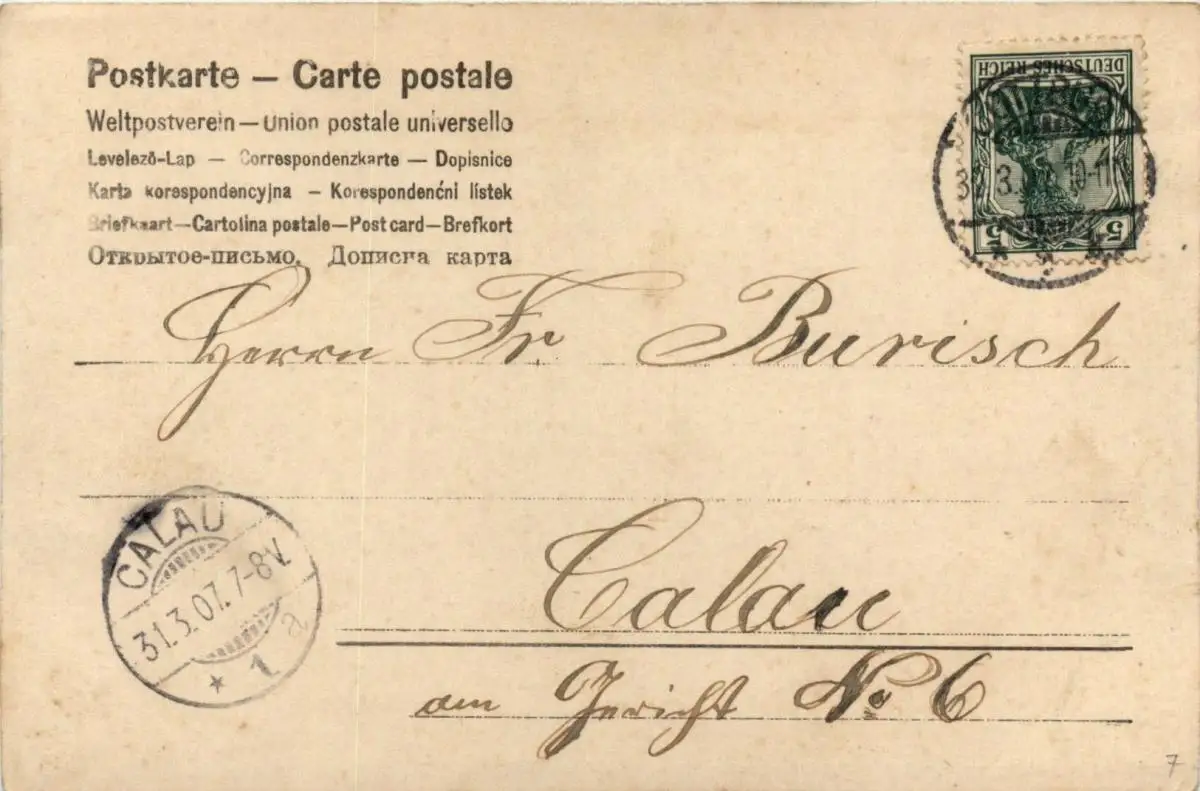 Postkarte – Carte postale
Weltpostverein – Union postale universello
Levelező-Lap – Correspondenzkarte – Dopisnice
Karta korespondencyjna – Korespondenćni lístek
Briefkaart – Cartolina postale – Post card – Brefkort
Открытое-письмо. Дописна карта
DEUTSCHES REICH
5 5
Herrn Fr Burisch
CALAU
31.3.07. 7-8V.
* 1 a
Calau
am Gericht No 6
7